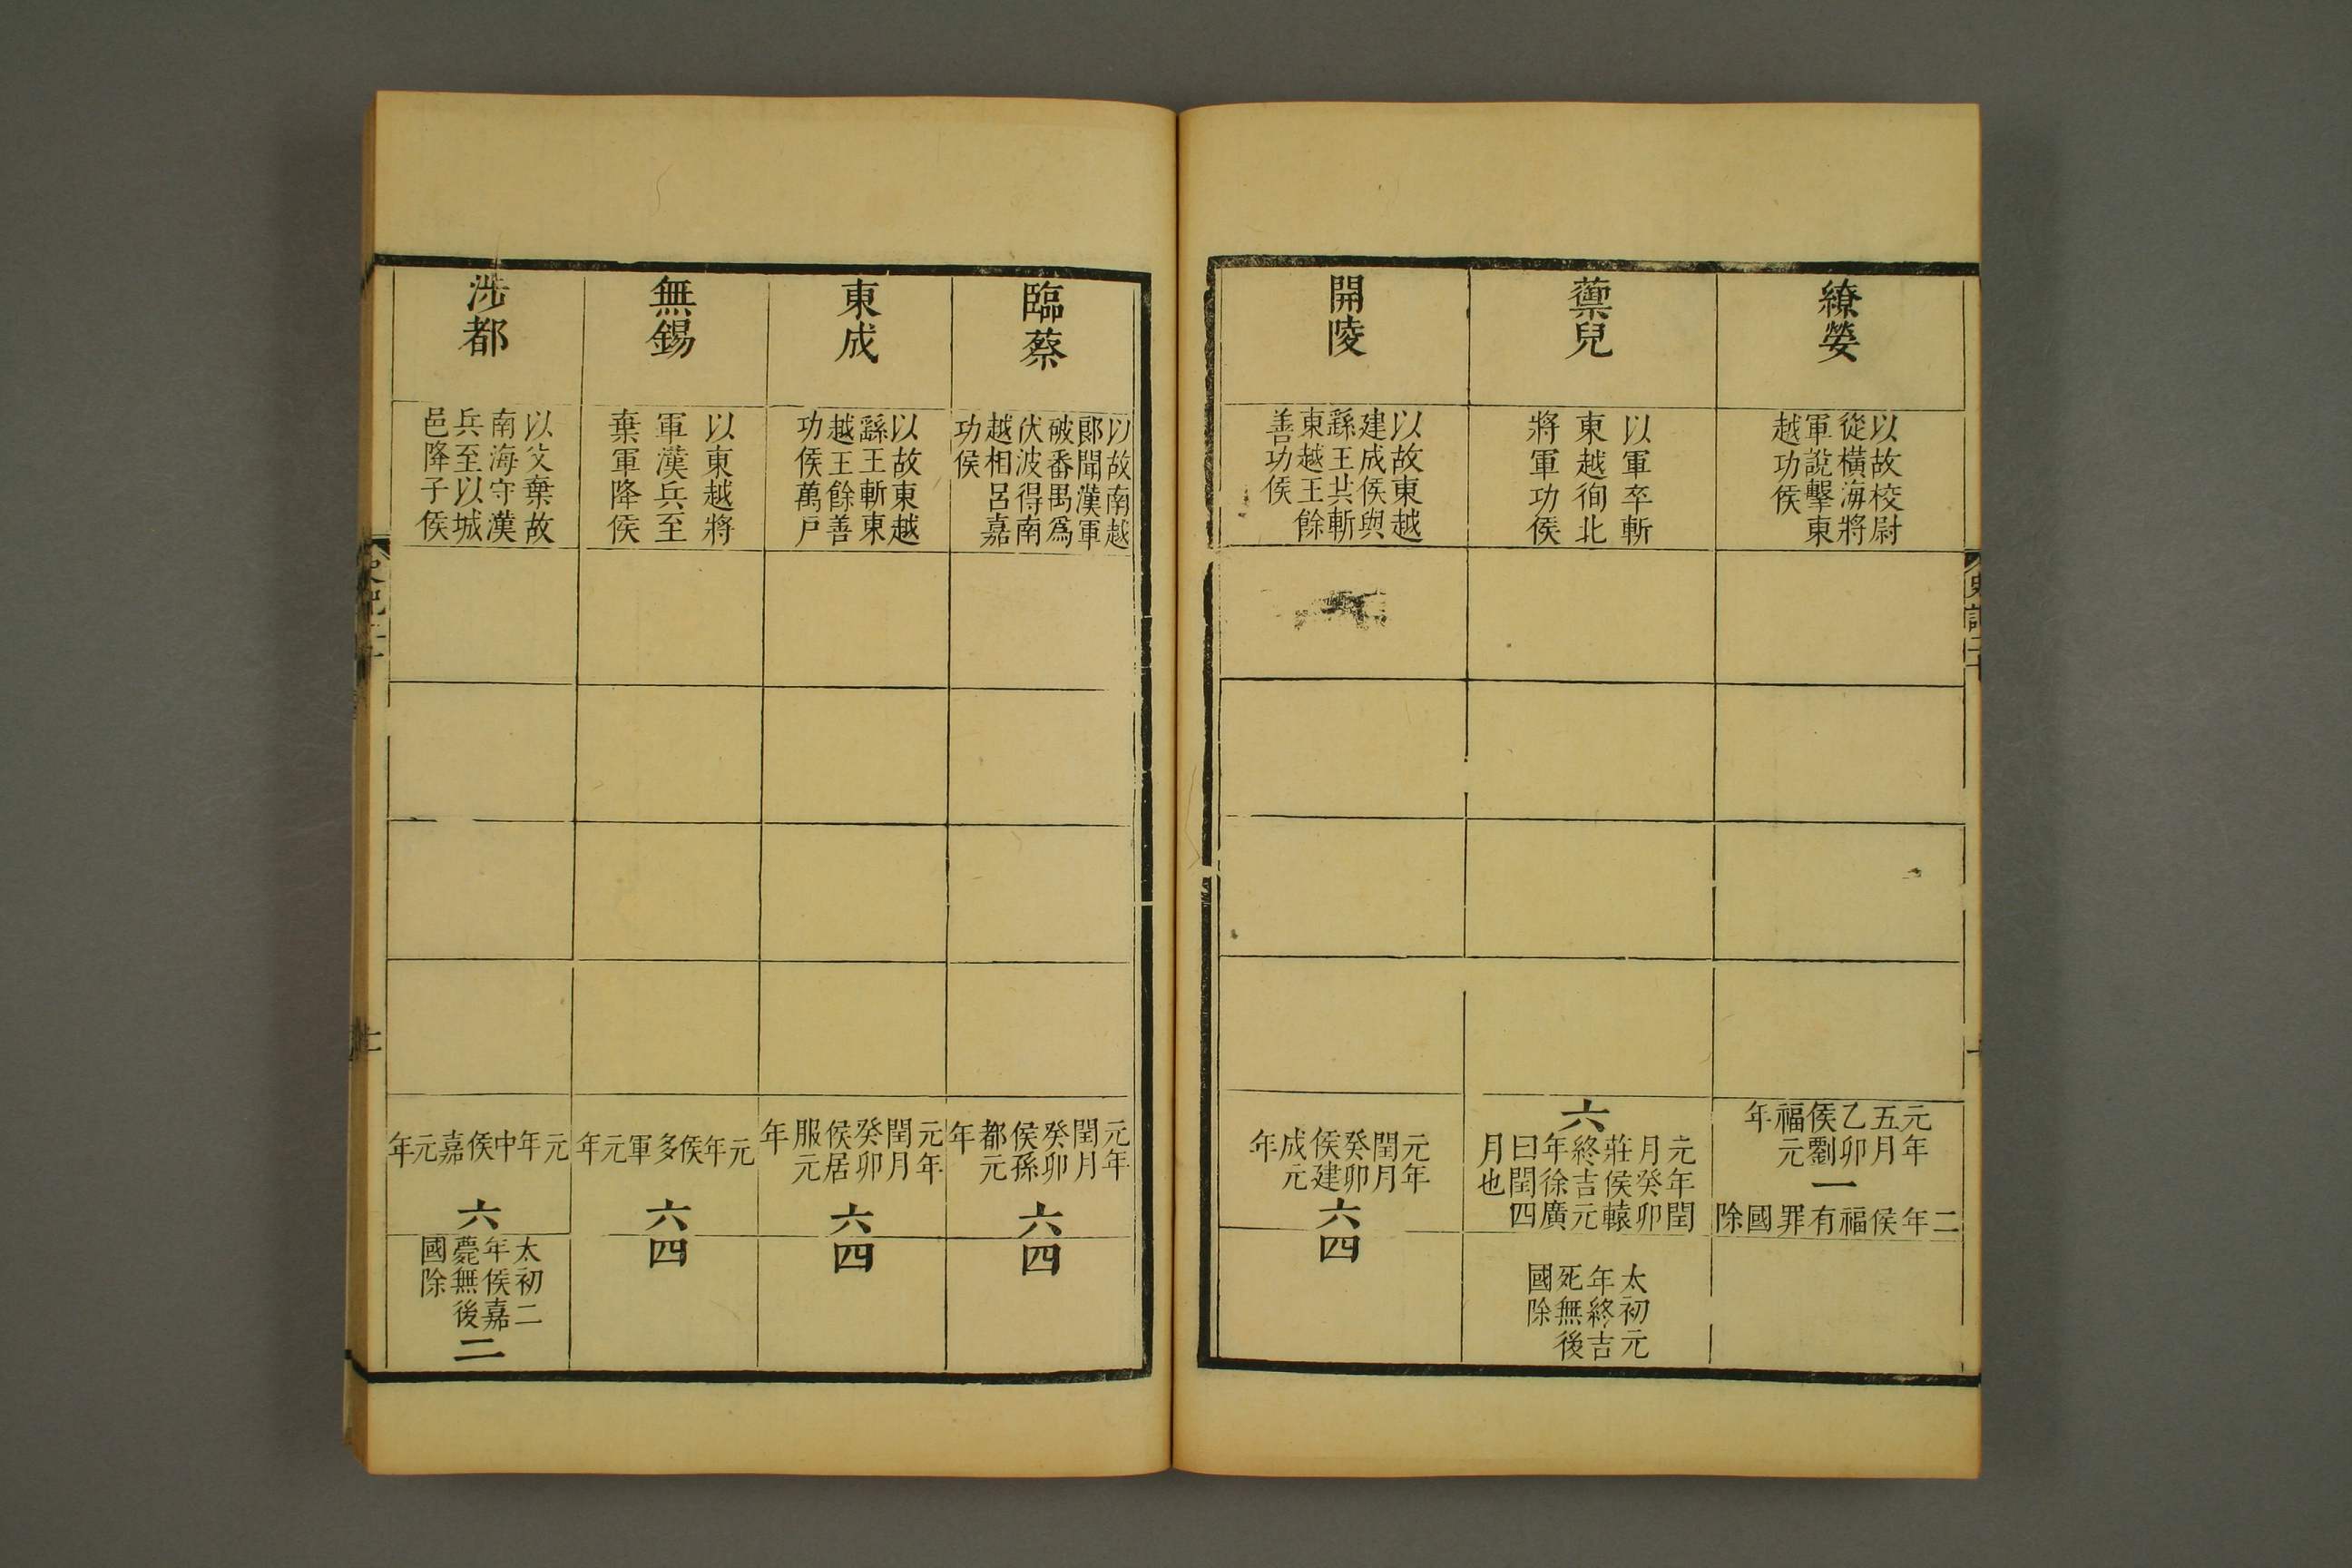 繚嫈
以故校尉
從橫海將
軍說擊東
越功侯
元年
五月
乙卯
侯劉
福元
年
一
二年侯福有罪國除
蘌兒
以軍卒斬
東越徇北
將軍功侯
六
元年閏
月癸卯
莊侯轅
終吉元
年徐廣
曰閏四
月也
太初元
年終吉
死無後
國除
開陵
以故東越
建成侯與
繇王共斬
東越王餘
善功侯
元年
閏月
癸卯
侯建
成元
年
六
四
臨蔡
以故南越
郎聞漢軍
破番禺爲
伏波得南
越相呂嘉
功侯
元年
閏月
癸卯
侯孫
都元
年
六
四
東成
以故東越
繇王斬東
越王餘善
功侯萬戶
元年
閏月
癸卯
侯居
服元
年
六
四
無錫
以東越將
軍漢兵至
棄軍降侯
元年侯多軍元年
六
四
涉都
以父棄故
南海守漢
兵至以城
邑降子侯
元年中侯嘉元年
六
太初二
年侯嘉
薨無後
國除
二